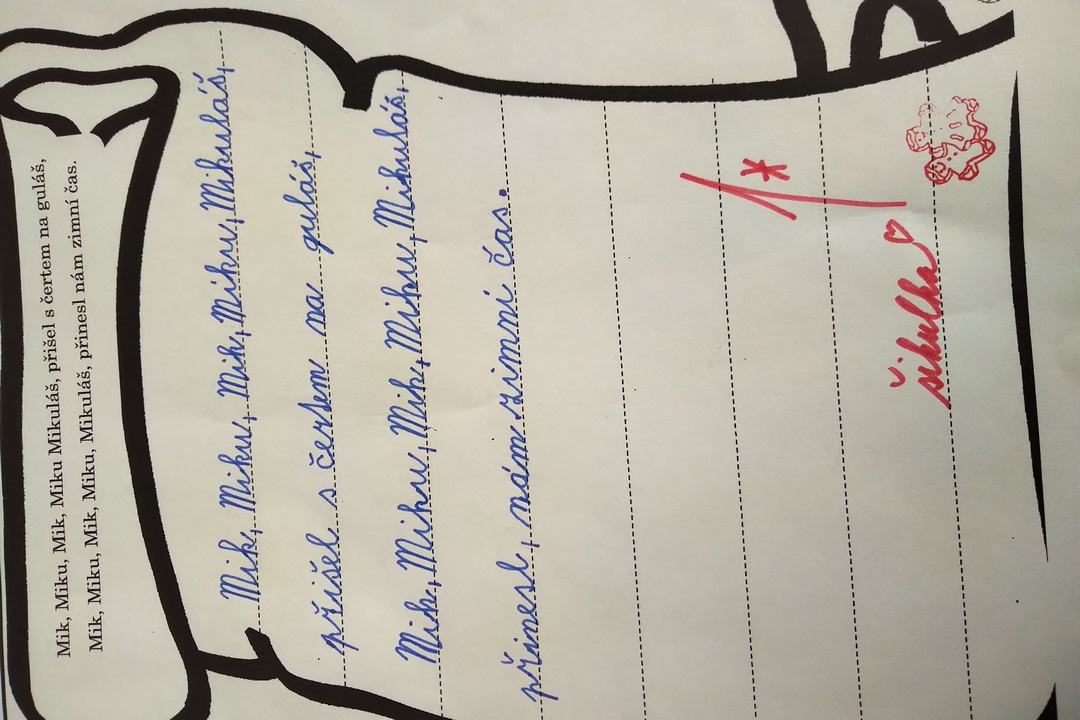 Mik, Miku, Mik, Miku Mikuláš, přišel s čertem na guláš,
Mik, Miku, Mik, Miku, Mikuláš, přinesl nám zimní čas.
Mik, Miku, Mik, Miku, Mikuláš,
přišel s čertem na guláš,
Mik, Miku, Mik, Miku, Mikuláš,
přinesl, nám zimní čas.
1*
šikulka ♡